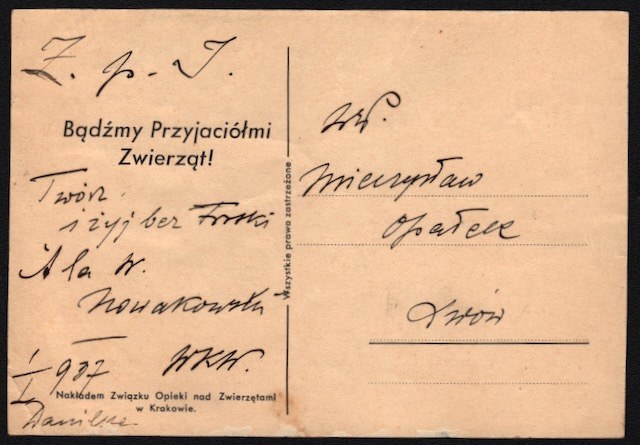 Z. p. J.
Bądźmy Przyjaciółmi
Zwierząt!
Twórz
i żyj bez troski
A la W.
Nowakowski
WKW.
1/I 937
Nakładem Związku Opieki nad Zwierzętami
w Krakowie.
Wszystkie prawa zastrzeżone.
WP.
Mieczysław
Opałek
Lwów